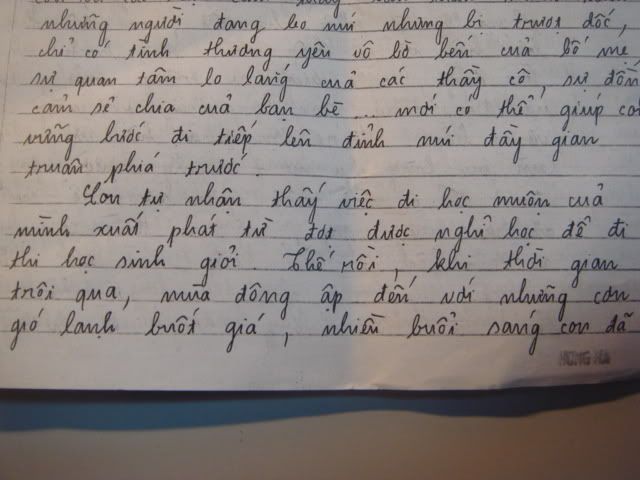 những người đang leo núi nhưng bị trượt dốc,
chỉ có tình thương yêu vô bờ bến của bố mẹ
sự quan tâm lo lắng của các thầy cô, sự đồng
cảm sẻ chia của bạn bè... mới có thể giúp con
vững bước đi tiếp lên đỉnh núi đầy gian
truân phía trước.
Con tự nhận thấy việc đi học muộn của
mình xuất phát từ đợt được nghỉ học để đi
thi học sinh giỏi. Thế rồi, khi thời gian
trôi qua, mùa đông ập đến với những cơn
gió lạnh buốt giá, nhiều buổi sáng con đã
HONG HA